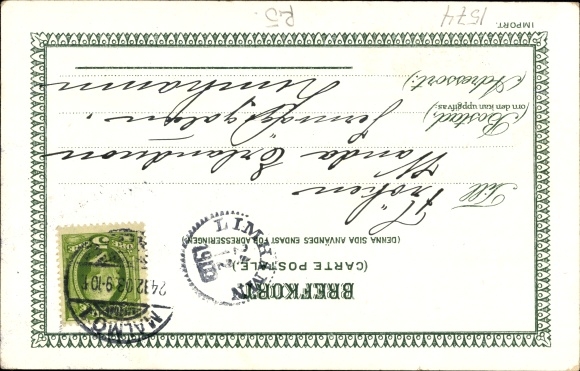 BREFKORT
(CARTE POSTALE.)
(DENNA SIDA ANVÄNDES ENDAST FÖR ADRESSERINGEN)
LIMHAMN
MALMÖ 1
24.12.03 9-10 F
Till Fröken
Wanda Erlandson
Bostad,
(om den kan uppgifvas:)
Järnvägsgatan.
(Adressort:)
Limhamn
IMPORT.
1574